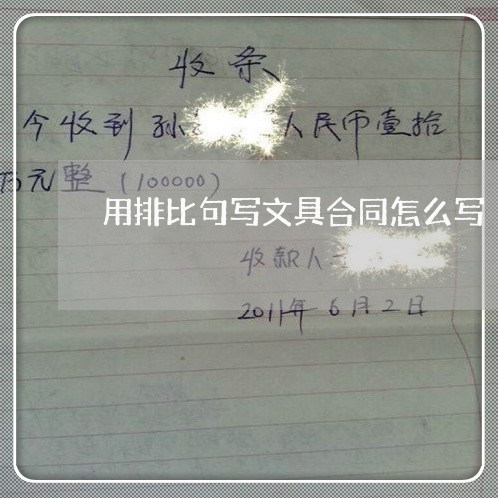 收条
今收到孙 人民币壹拾
万元整(100000)
用排比句写文具合同怎么写
收款人
2011年6月2日